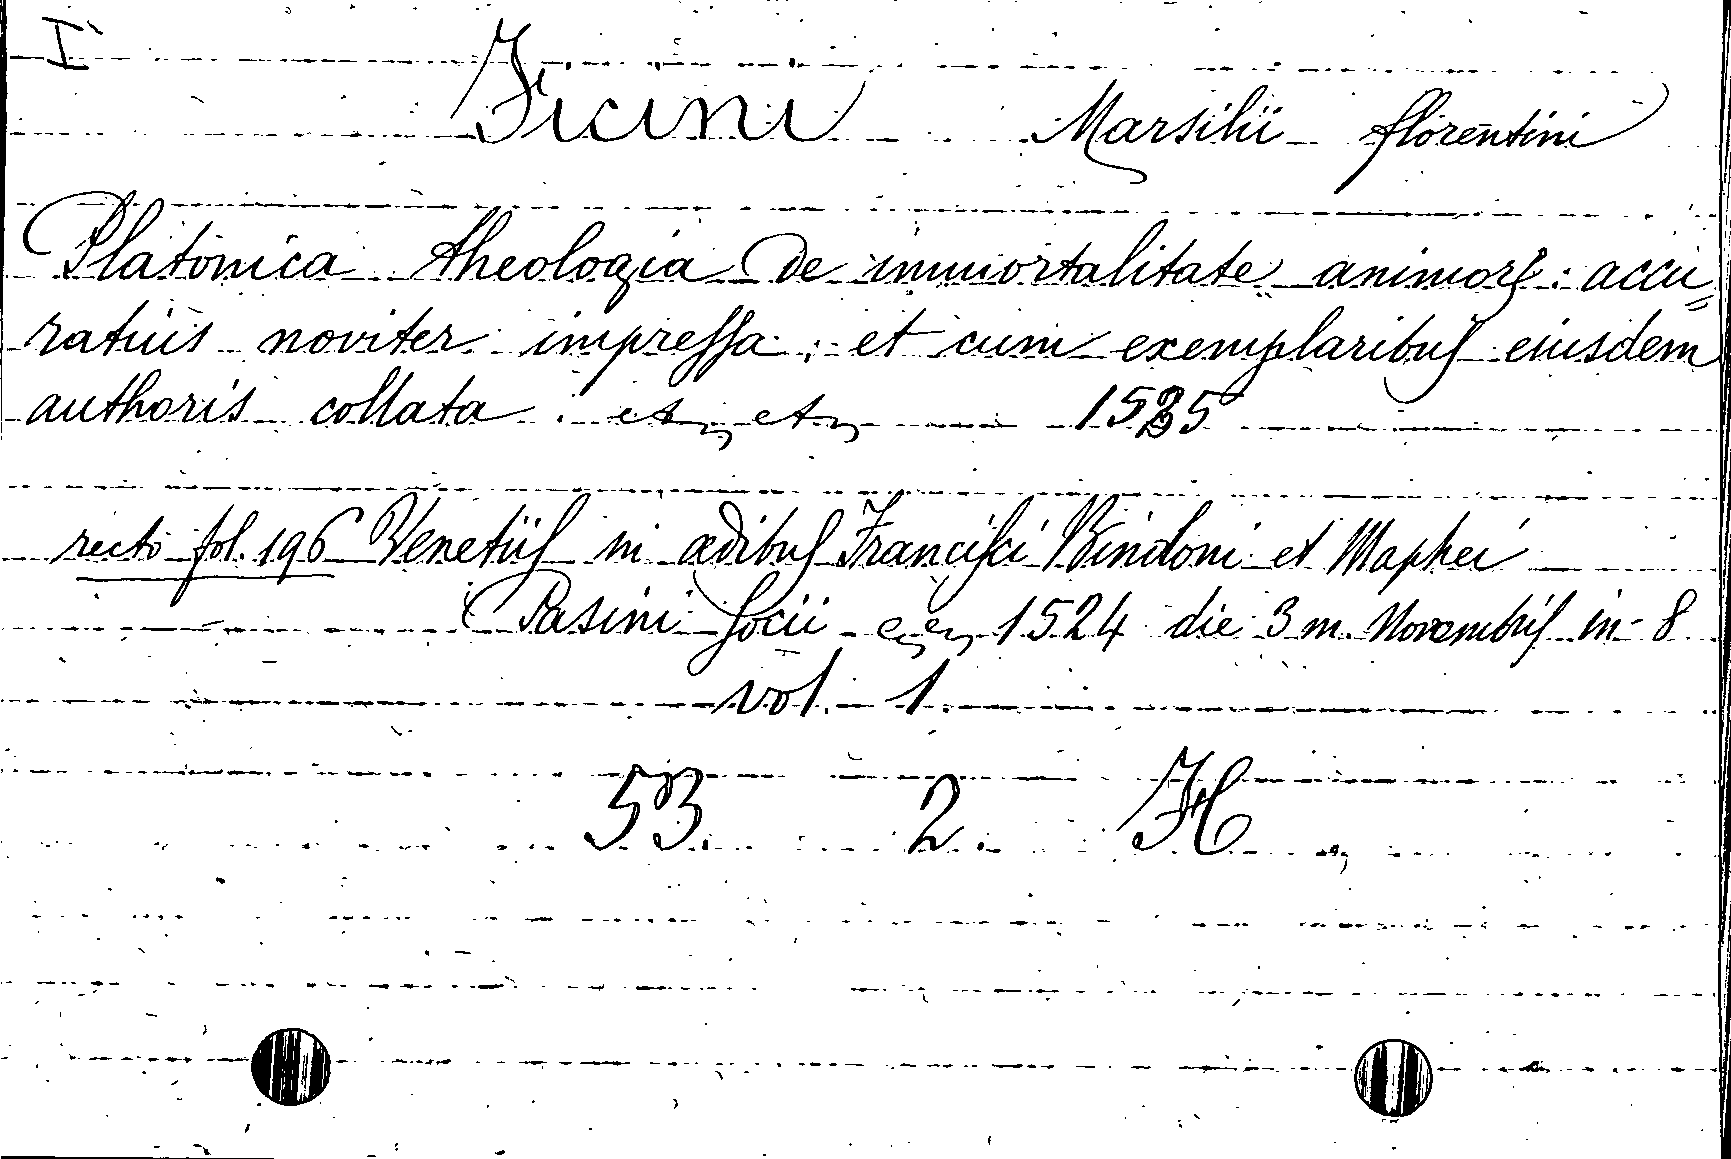 I
Ficini Marsilii florentini
Platonica theologia De immortalitate animoꝝ : accu
ratius noviter impreſſa : et cum exemplaribuſ eiusdem
authoris collata . etc etc 1525
recto fol. 196 Venetiiſ in ædibuſ Franciſci Bindoni et Maphei
Pasini ſocii 1524 die 3 m. Novembriſ in-8
vol. 1.
53. 2. H